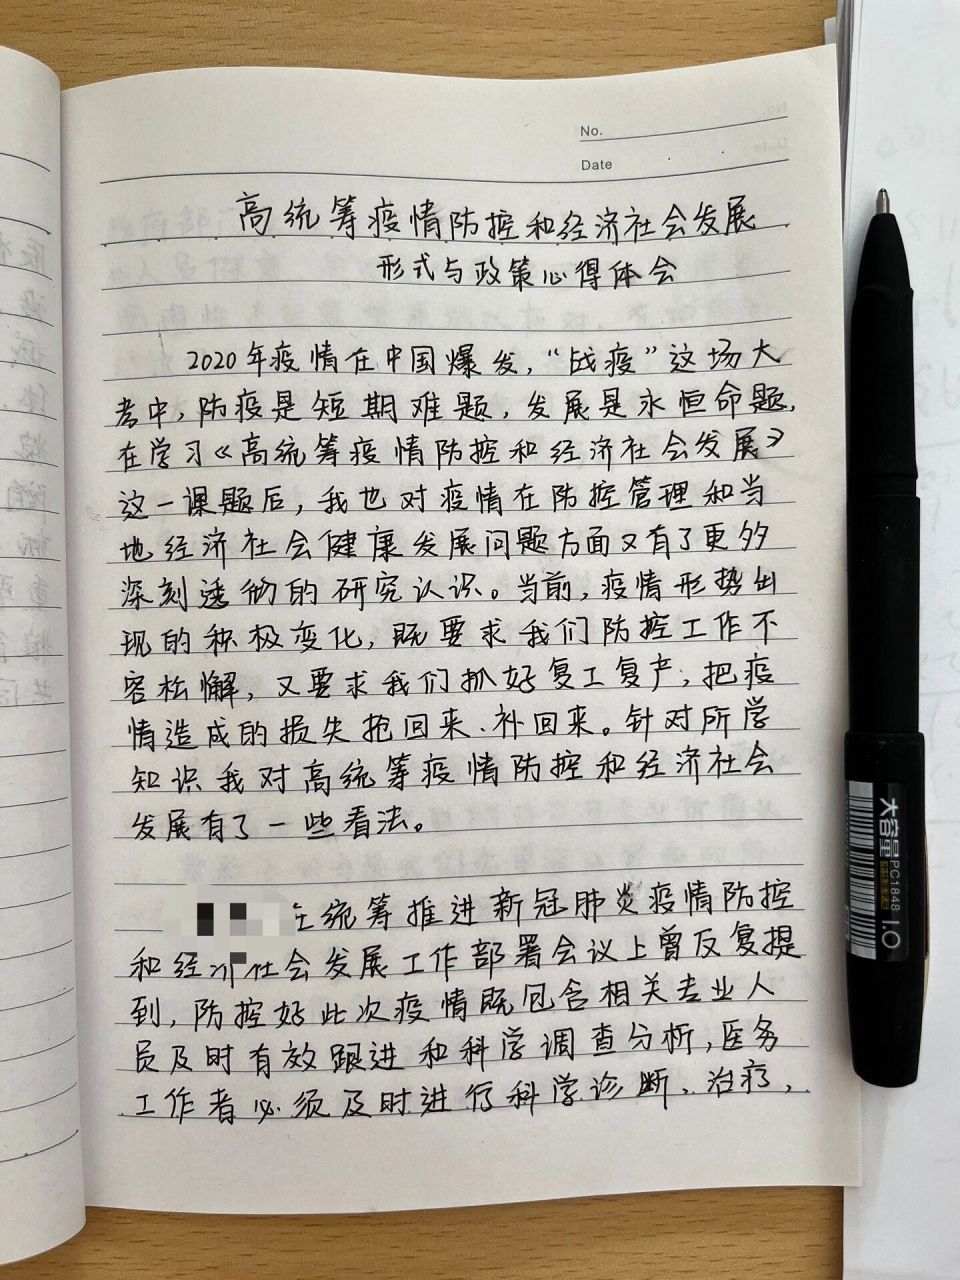 No.
Date
高统筹疫情防控和经济社会发展
形式与政策心得体会
2020年疫情在中国爆发，“战疫”这场大
考中，防疫是短期难题，发展是永恒命题，
在学习《高统筹疫情防控和经济社会发展》
这一课题后，我也对疫情在防控管理和当
地经济社会健康发展问题方面又有了更多
深刻透彻的研究认识。当前，疫情形势出
现的积极变化，既要求我们防控工作不
容松懈，又要求我们抓好复工复产，把疫
情造成的损失抢回来、补回来。针对所学
知识我对高统筹疫情防控和经济社会
发展有了一些看法。
在统筹推进新冠肺炎疫情防控
和经济社会发展工作部署会议上曾反复提
到，防控好此次疫情既包含相关专业人
员及时有效跟进和科学调查分析，医务
工作者必须及时进行科学诊断、治疗，
大容量
PC1848
1.0